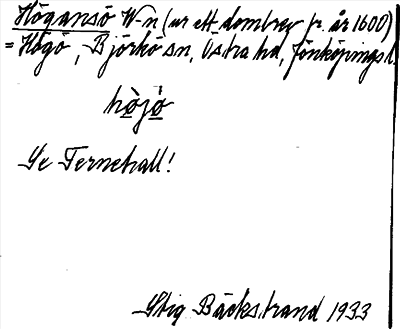 Högansö W-n (ur ett dombrev fr. år 1600)
= Högö, Björkö sn, Östra hd, Jönköpings l.
hòjö
Se Ternehall!
Stig Bäckstrand 1933